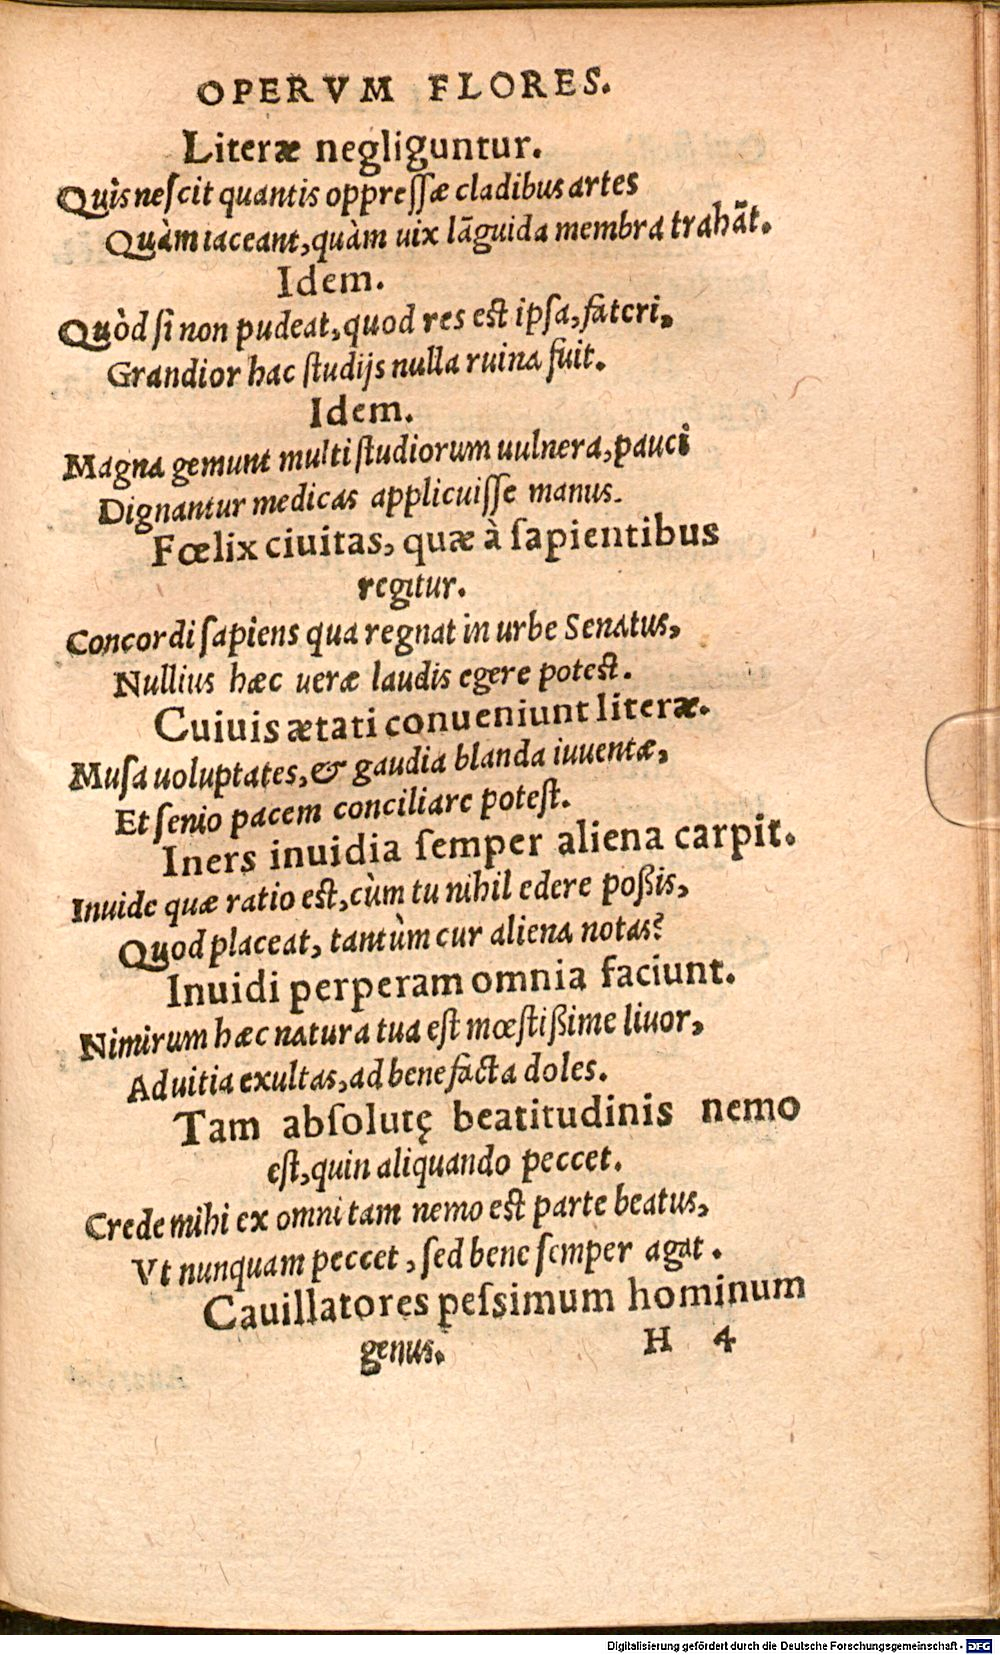 OPERVM FLORES.
Literæ negliguntur.
Quis neſcit quantis oppreſſæ cladibus artes
Quàm iaceant, quàm uix lāguida membra trahāt.
Idem.
Quòd ſi non pudeat, quod res eſt ipſa, fateri,
Grandior hac ſtudijs nulla ruina fuit.
Idem.
Magna gemunt multi ſtudiorum uulnera, pauci
Dignantur medicas applicuiſſe manus.
Fœlix ciuitas, quæ à ſapientibus
regitur.
Concordi ſapiens qua regnat in urbe Senatus,
Nullius hæc ueræ laudis egere poteſt.
Cuiuis ætati conueniunt literæ.
Muſa uoluptates, & gaudia blanda iuuentæ,
Et ſenio pacem conciliare poteſt.
Iners inuidia ſemper aliena carpit.
Inuide quæ ratio eſt, cùm tu nihil edere poßis,
Quod placeat, tantùm cur aliena notas?
Inuidi perperam omnia faciunt.
Nimirum hæc natura tua eſt mœſtißime liuor,
Ad uitia exultas, ad benefacta doles.
Tam abſolutę beatitudinis nemo
eſt, quin aliquando peccet.
Crede mihi ex omni tam nemo eſt parte beatus,
Vt nunquam peccet, ſed bene ſemper agat.
Cauillatores peſsimum hominum
genus. H 4
Digitalisierung gefördert durch die Deutsche Forschungsgemeinschaft - DFG